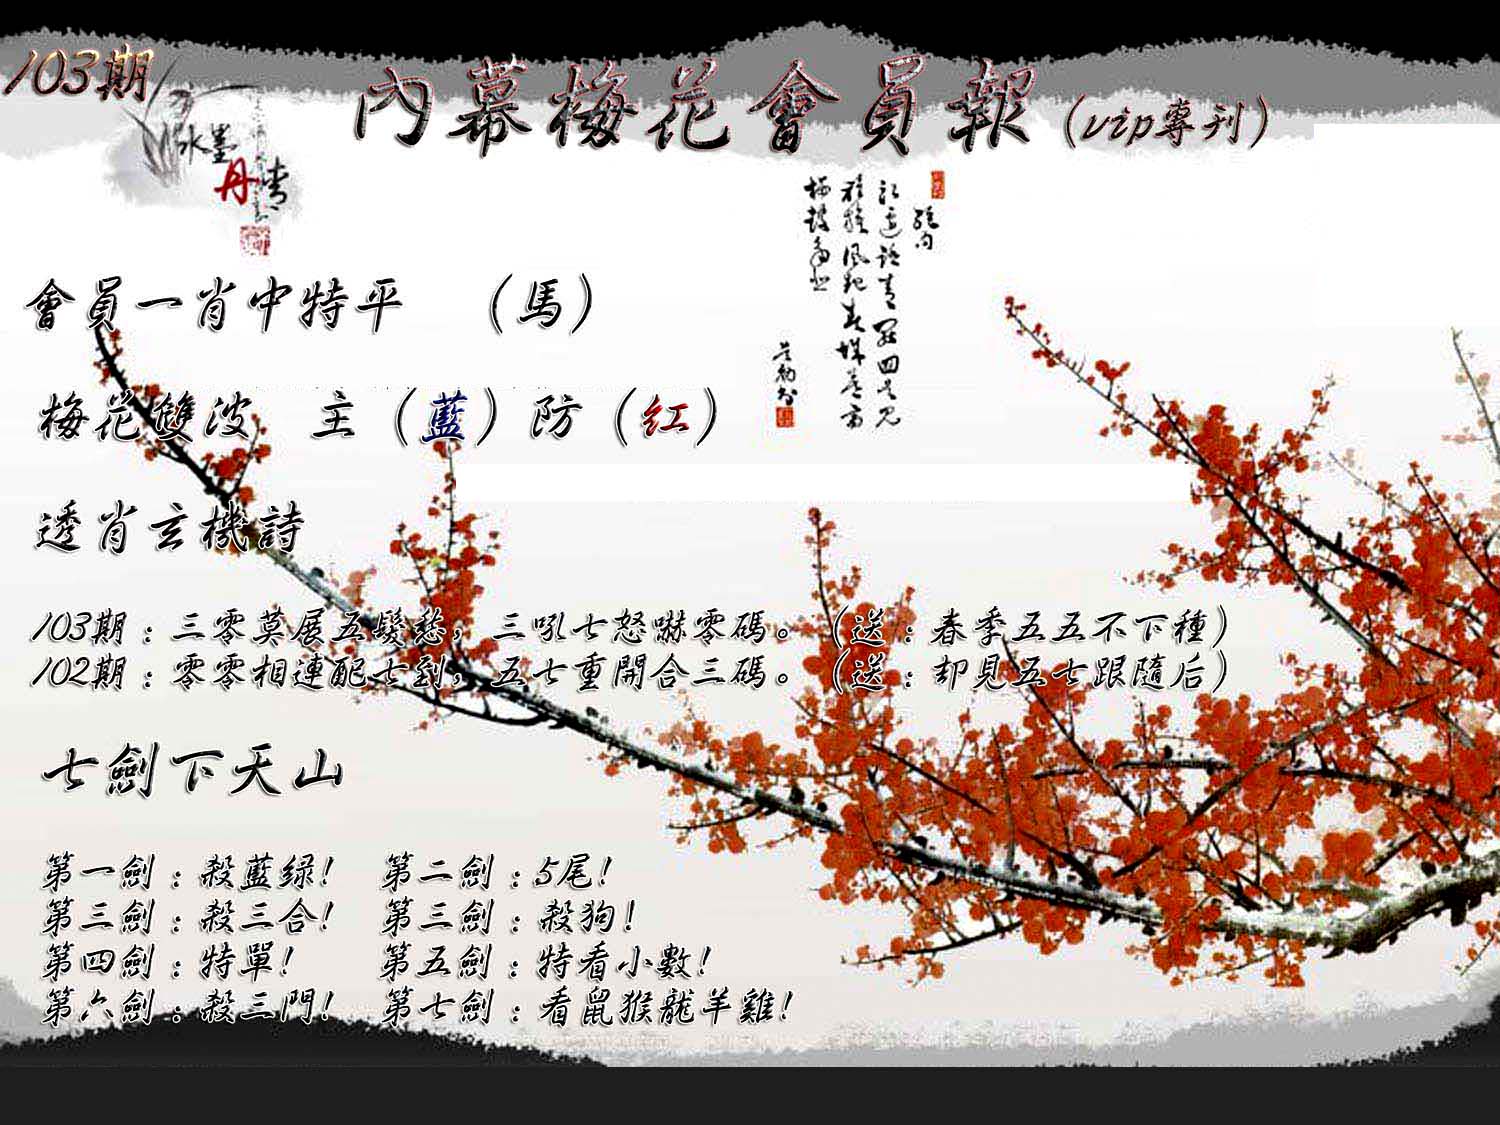 103期
內幕梅花會員報（vip專刊）
水墨
丹青
會員一肖中特平　（馬）
梅花雙波　主（藍）防（紅）
透肖玄機詩
103期：三零莫展五髮愁，三吼七怒嚇零碼。（送：春季五五不下種）
102期：零零相連配七到，五七重開合三碼。（送：却見五七跟隨后）
七劍下天山
第一劍：殺藍绿！　第二劍：5尾！
第三劍：殺三合！　第三劍：殺狗！
第四劍：特單！　第五劍：特看小數！
第六劍：殺三門！　第七劍：看鼠猴龍羊雞！